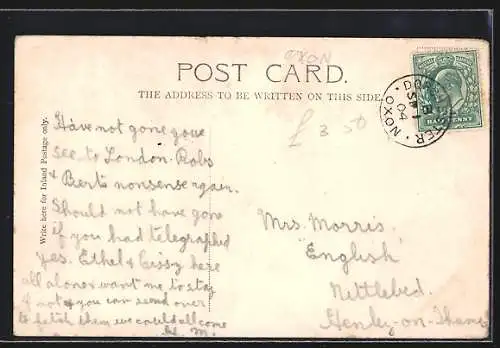 OXON
POST CARD.
THE ADDRESS TO BE WRITTEN ON THIS SIDE.
Write here for Inland Postage only.
HALFPENNY
DORCHESTER
OXON
04
£ 3 50
Have not gone you
see to London. Robs
& Bert's nonsense again.
Should not have gone
if you had telegraphed
yes. Ethel & Cissy here
all alone want me to stay
if not & you can send over
to fetch them we could all come
M.
Mrs. Morris.
"English"
Nettlebed.
Henley-on-Thames